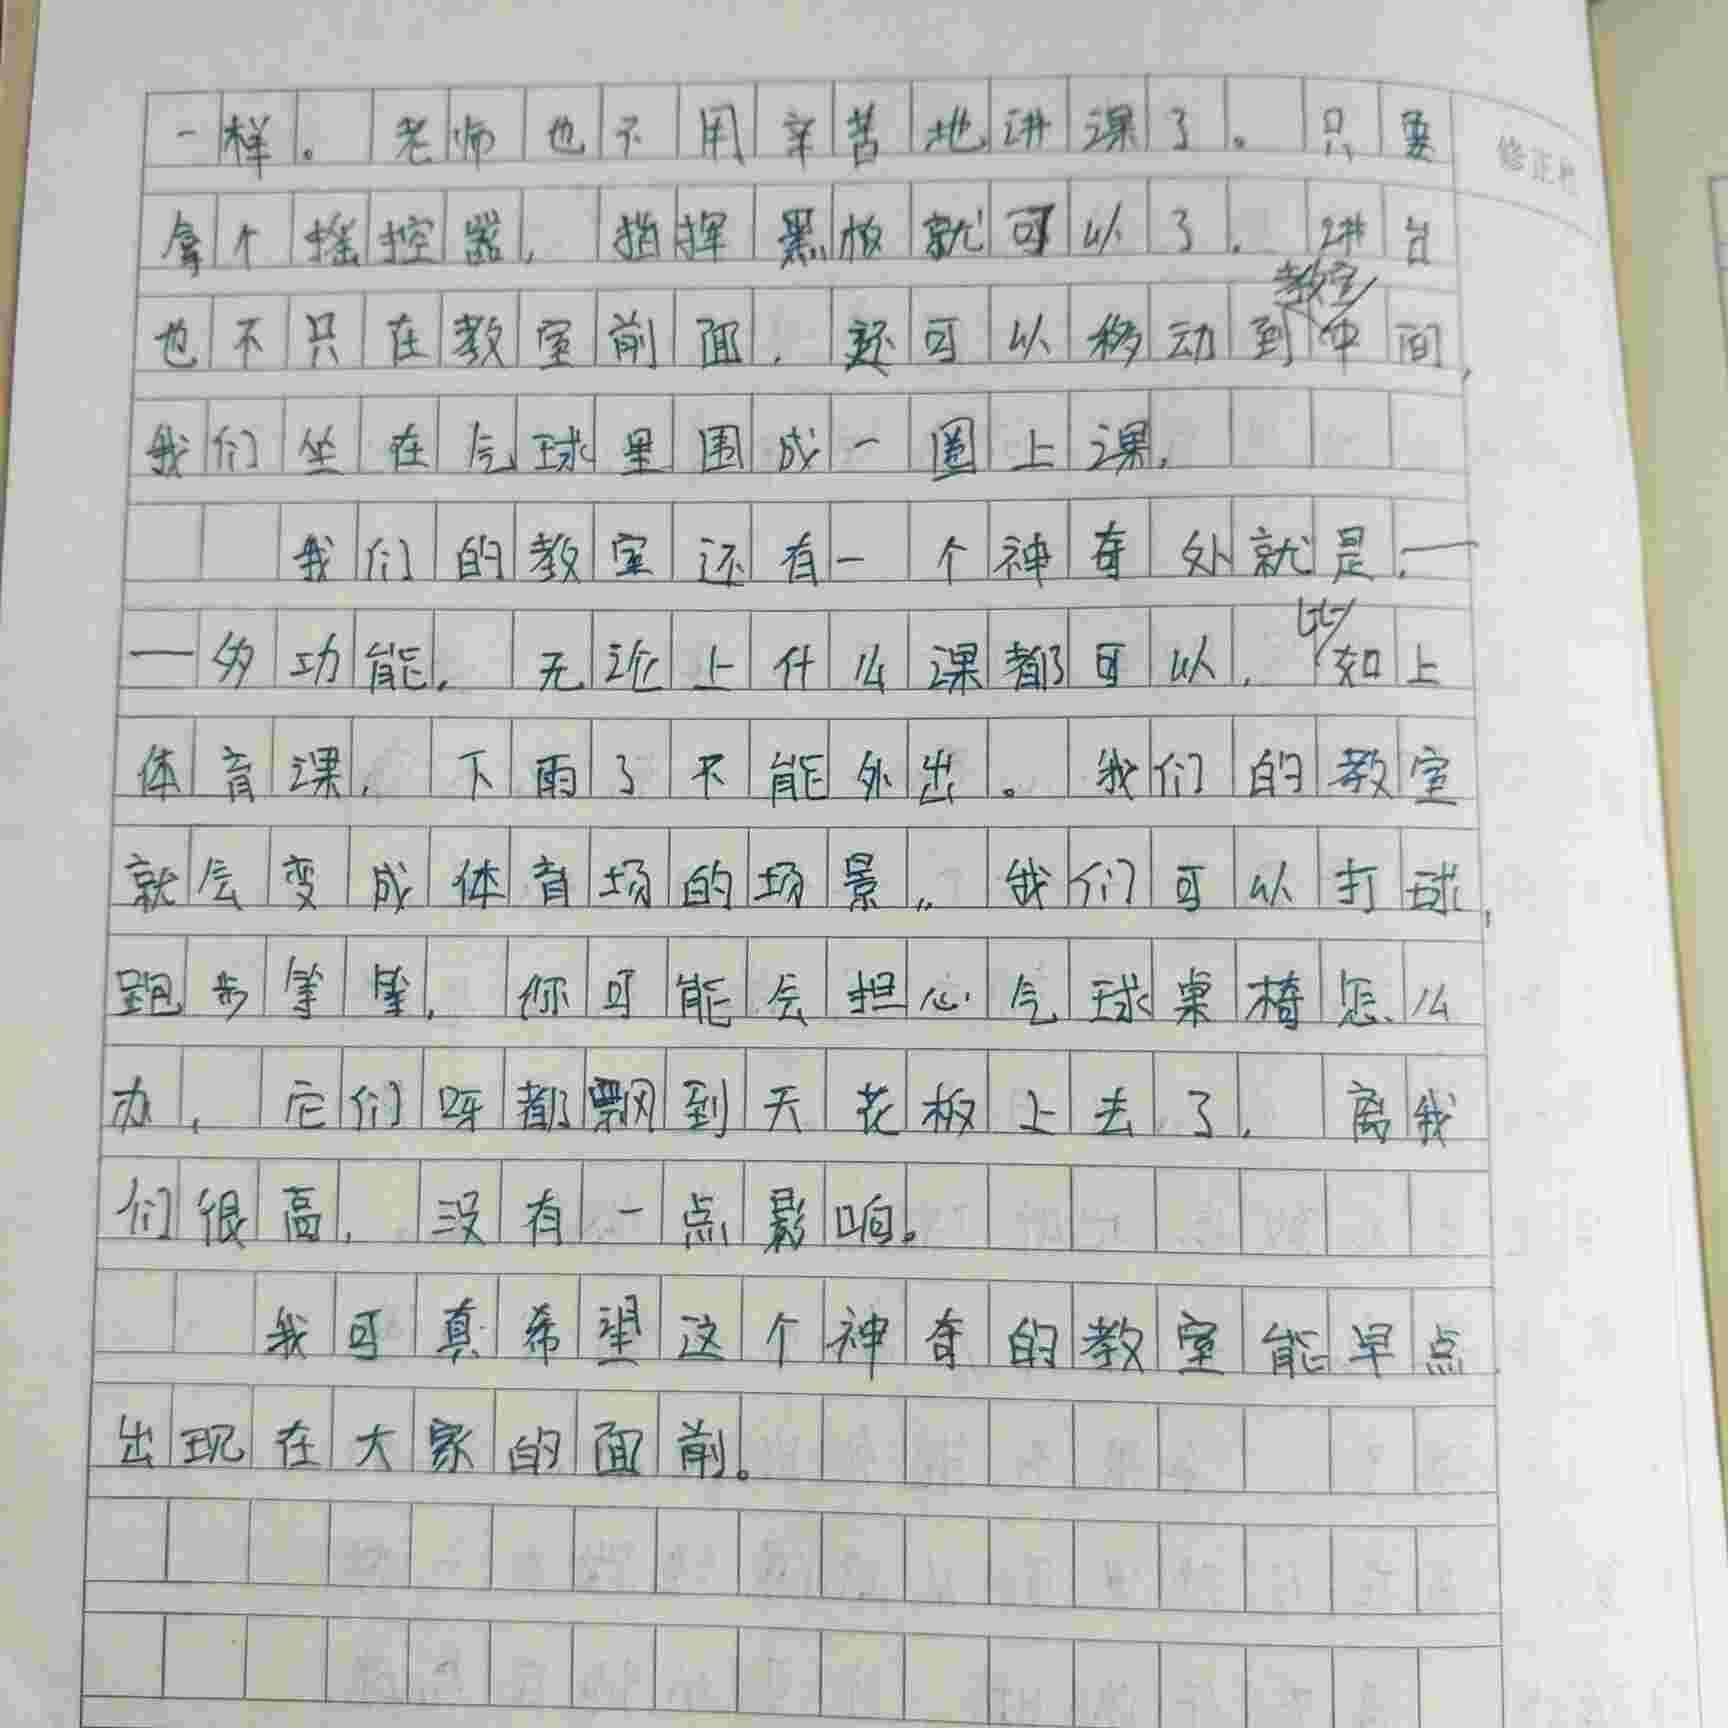 一样。老师也不用辛苦地讲课了。只要
拿个摇控器，指挥黑板就可以了。讲台
也不只在教室前面，还可以移动到教室中间，
我们坐在气球里围成一圈上课。
我们的教室还有一个神奇处就是，—
—多功能，无论上什么课都可以，比如上
体育课，下雨了不能外出。我们的教室
就会变成体育场的场景，我们可以打球，
跑步等等，你可能会担心气球桌椅怎么
办，它们呀都飘到天花板上去了，离我
们很高，没有一点影响。
我可真希望这个神奇的教室能早点
出现在大家的面前。